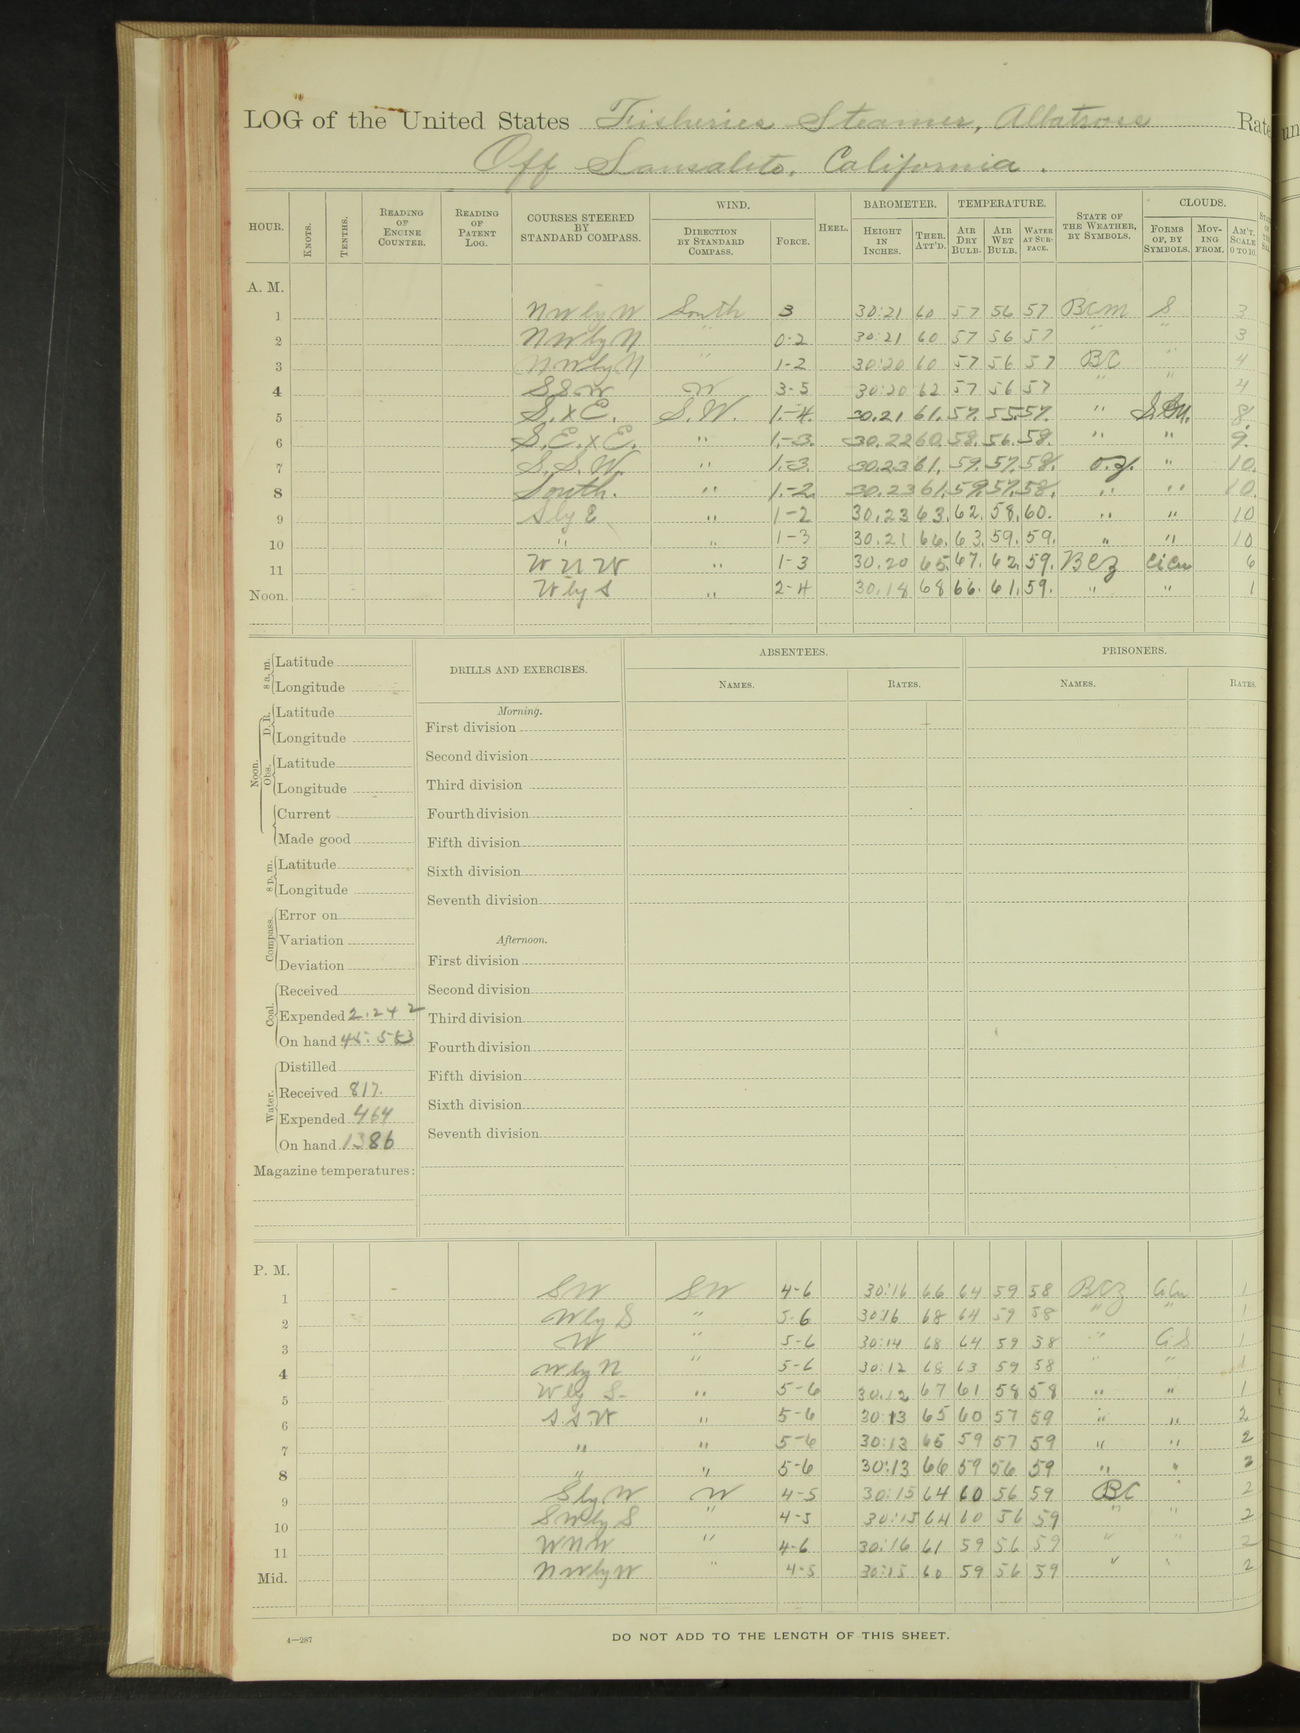 LOG of the United States Fisheries Steamer, Albatross Rate
Off Sausalito, California.
HOUR. KNOTS. TENTHS. READING OF ENGINE COUNTER. READING OF PATENT LOG. COURSES STEERED BY STANDARD COMPASS. WIND. DIRECTION BY STANDARD COMPASS. FORCE. HEEL. BAROMETER. HEIGHT IN INCHES. THER. ATT'D. TEMPERATURE. AIR DRY BULB. AIR WET BULB. WATER AT SURFACE. STATE OF THE WEATHER, BY SYMBOLS. CLOUDS. FORMS OF, BY SYMBOLS. MOVING FROM. AM'T, SCALE 0 TO 10.
A. M.
1 NW by W South 3 30:21 60 57 56 57 BCM S 3
2 NW by N " 0-2 30:21 60 57 56 57 " " 3
3 NW by N " 1-2 30:20 60 57 56 57 BC " 4
4 SSW W 3-5 30:20 62 57 56 57 " " 4
5 S.xE. S.W. 1.-4. 30.21 61. 57. 55. 57. " 8.
6 S.E.xE. " 1.-3. 30.22 60. 58. 56. 58. " " 9.
7 S.S.W. " 1.-3. 30.23 61. 59. 57. 58. o.z. " 10.
8 South. " 1.-2. 30.23 61. 59. 57. 58. " " 10.
9 S by E " 1-2 30.23 63. 62. 58. 60. " " 10
10 " " 1-3 30.21 66. 63. 59. 59. " " 10
11 WNW " 1-3 30.20 65. 67. 62. 59. BCZ CiCu 6
Noon. W by S " 2-4 30.18 68 66. 61. 59. " " 1
8 a. m. Latitude
Longitude
Noon. D. R. Latitude
Longitude
Obs. Latitude
Longitude
Current
Made good
8 p. m. Latitude
Longitude
Compass. Error on
Variation
Deviation
Coal. Received
Expended 2.242
On hand
Water. Distilled
Received 817.
Expended 464
On hand 1386
Magazine temperatures:
DRILLS AND EXERCISES.
Morning.
First division
Second division
Third division
Fourth division
Fifth division
Sixth division
Seventh division
Afternoon.
First division
Second division
Third division
Fourth division
Fifth division
Sixth division
Seventh division
ABSENTEES.
NAMES. RATES.
PRISONERS.
NAMES. RATES.
P. M.
1 SW SW 4-6 30:16 66 64 59 58 BCZ CiCu 1
2 W by S " 5-6 30:16 68 64 59 58 " " 1
3 W " 5-6 30:14 68 64 59 58 " CS 1
4 W by N " 5-6 30:12 68 63 59 58 " " 1
5 W by S- " 5-6 30.12 67 61 58 58 " " 1
6 S.S.W " 5-6 30:13 65 60 57 59 " " 2
7 " " 5-6 30:13 65 59 57 59 " " 2
8 " " 5-6 30:13 66 59 56 59 " " 2
9 S by W W 4-5 30:15 64 60 56 59 BC " 2
10 SW by S " 4-5 30:15 64 60 56 59 " " 2
11 WNW " 4-6 30:16 61 59 56 59 " " 2
Mid. NW by W " 4-5 30:15 60 59 56 59 " " 2
4—287
DO NOT ADD TO THE LENGTH OF THIS SHEET.